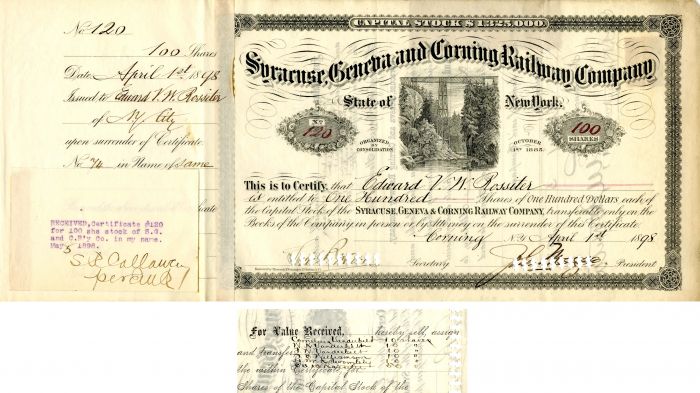 No. 120
100 Shares
Date, April 1st 1898
Issued to Edward V. W. Rossiter
of N.Y. City
upon surrender of Certificate
No. 74 in Name of Same
RECEIVED, Certificate #120
for 100 shs stock of S.G.
and C.R'y Co. in my name.
May 5 1898.
S. R. Callaway
per
CAPITAL STOCK $1,325,000
Syracuse, Geneva and Corning Railway Company
State of New York.
No
120
ORGANIZED BY CONSOLIDATION
OCTOBER 1ST 1885.
100
SHARES
This is to Certify, that Edward V. W. Rossiter
is entitled to One Hundred Shares of One Hundred Dollars each of
the Capital Stock of the SYRACUSE, GENEVA & CORNING RAILWAY COMPANY, transferable only on the
Books of the Company in person or by Attorney on the surrender of this Certificate.
Corning N.Y. April 1st 1898
Secretary
President
For Value Received, hereby sell, assign
Cornelius Vanderbilt 10 shares
W. K. Vanderbilt 10 "
and transfer
10 "
10 "
10 "
50 "
the within Certificate, for
Shares of the Capital Stock of the